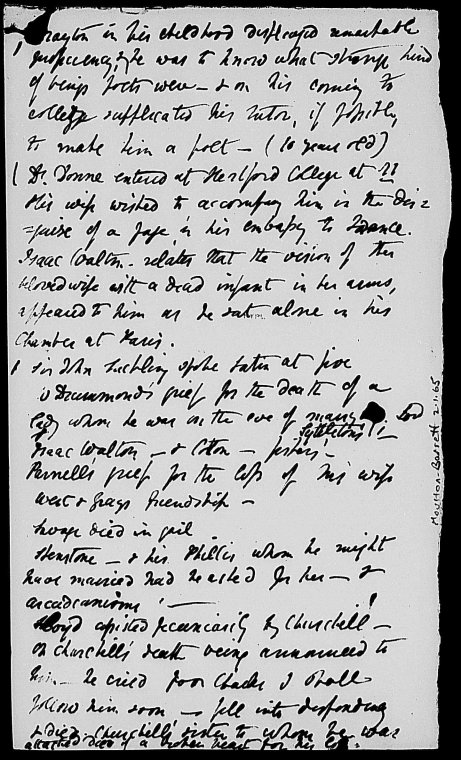 Drayton in his childhood displayed remarkable
proficiency & he was to know what strange kind
of beings poets were — & on his coming to
college supplicated his tutor, if possibly
to make him a poet — (10 years old)
Dr. Donne entered at Hertford College at 11
His wife wished to accompany him in the dis=
=guise of a page in his embassy to France.
Isaac Walton relates that the vision of this
beloved wife with a dead infant in her arms,
appeared to him as he sat alone in his
Chamber at Paris.
Sir John Suckling spoke Latin at five
Drummond's grief for the death of a
lady whom he was on the eve of marry
Lord
Lyttleton's
Isaac Walton — & Cotton — fishers —
Parnell's grief for the loss of his wife
West & Grays friendship —
Savage died in gaol
Shenstone — & his Phillis whom he might
have married had he asked for her — &
arcadianisms! —
Lloyd assisted pecuniarily by Churchill —
On Churchill's death being announced to
him — he cried poor Charles I shall
follow him soon — & fell into despondency
& died — Churchill's sister to whom he was
attached died of a broken heart for his loss.
Moulton-Barrett 2.1.65